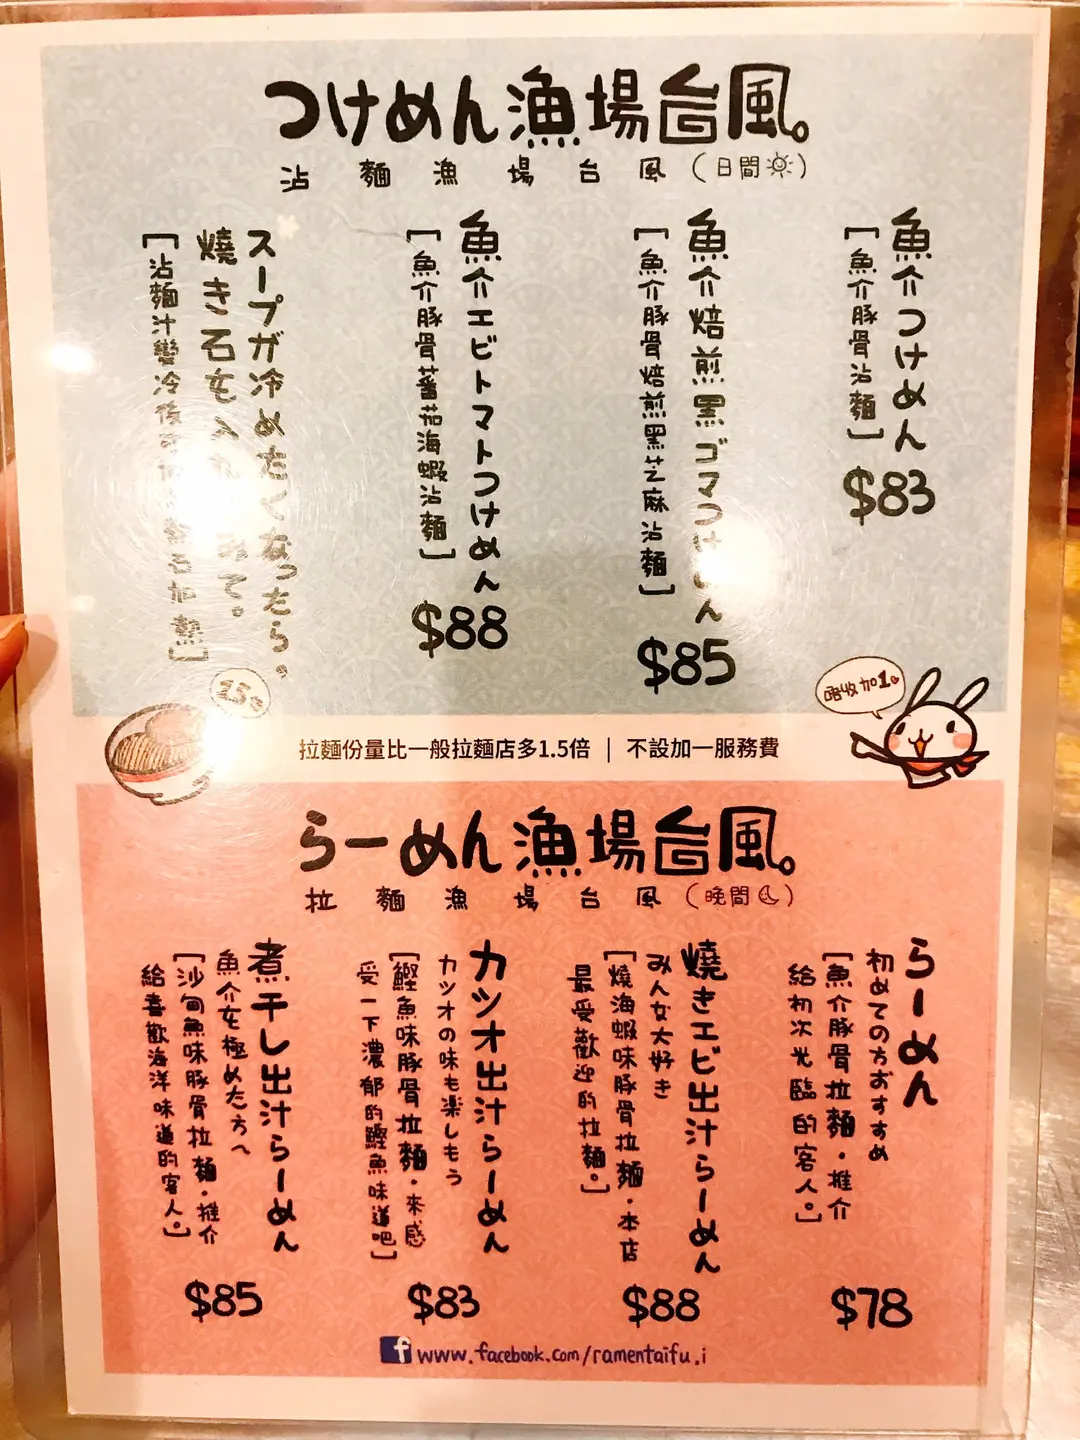 つけめん漁場台風。
沾麵漁場台風(日間)
魚介つけめん
[魚介豚骨沾麵]
$83
魚介焙煎黒ゴマつけめん
[魚介豚骨焙煎黑芝麻沾麵]
$85
魚介エビトマトつけめん
[魚介豚骨蕃茄海蝦沾麵]
$88
スープが冷めたくなったら。
燒き石を入れみて。
[沾麵汁變冷後石加熱]
1.5
唔收加1
拉麵份量比一般拉麵店多1.5倍 | 不設加一服務費
らーめん漁場台風。
拉麵漁場台風(晚間)
らーめん
初めての方おすすめ
[魚介豚骨拉麵・推介
給初次光臨的客人。]
$78
燒きエビ出汁らーめん
みん女大好き
[燒海蝦味豚骨拉麵・本店
最受歡迎的拉麵。]
$88
カツオ出汁らーめん
カツオの味も楽しもう
[鰹魚味豚骨拉麵・來感
受一下濃郁的鰹魚味道吧]
$83
煮干し出汁らーめん
魚介を極めた方へ
[沙甸魚味豚骨拉麵・推介
給喜歡海洋味道的客人。]
$85
www.facebook.com/ramentaifu.i